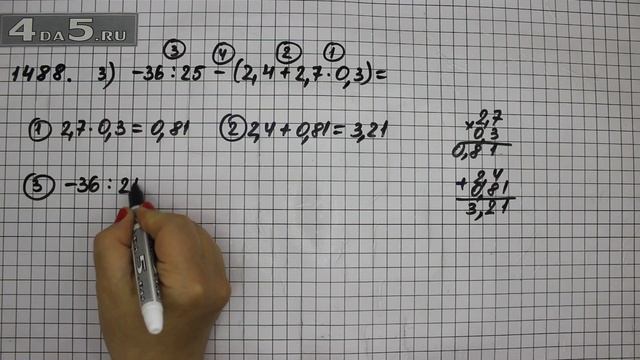 4DA5.RU
③ ④ ② ①
1488. 3) -36:25-(2,4+2,7·0,3)=
① 2,7·0,3=0,81 ② 2,4+0,81=3,21
③ -36:2
×2,7
0,3
0,81
+2,4
0,81
3,21
5